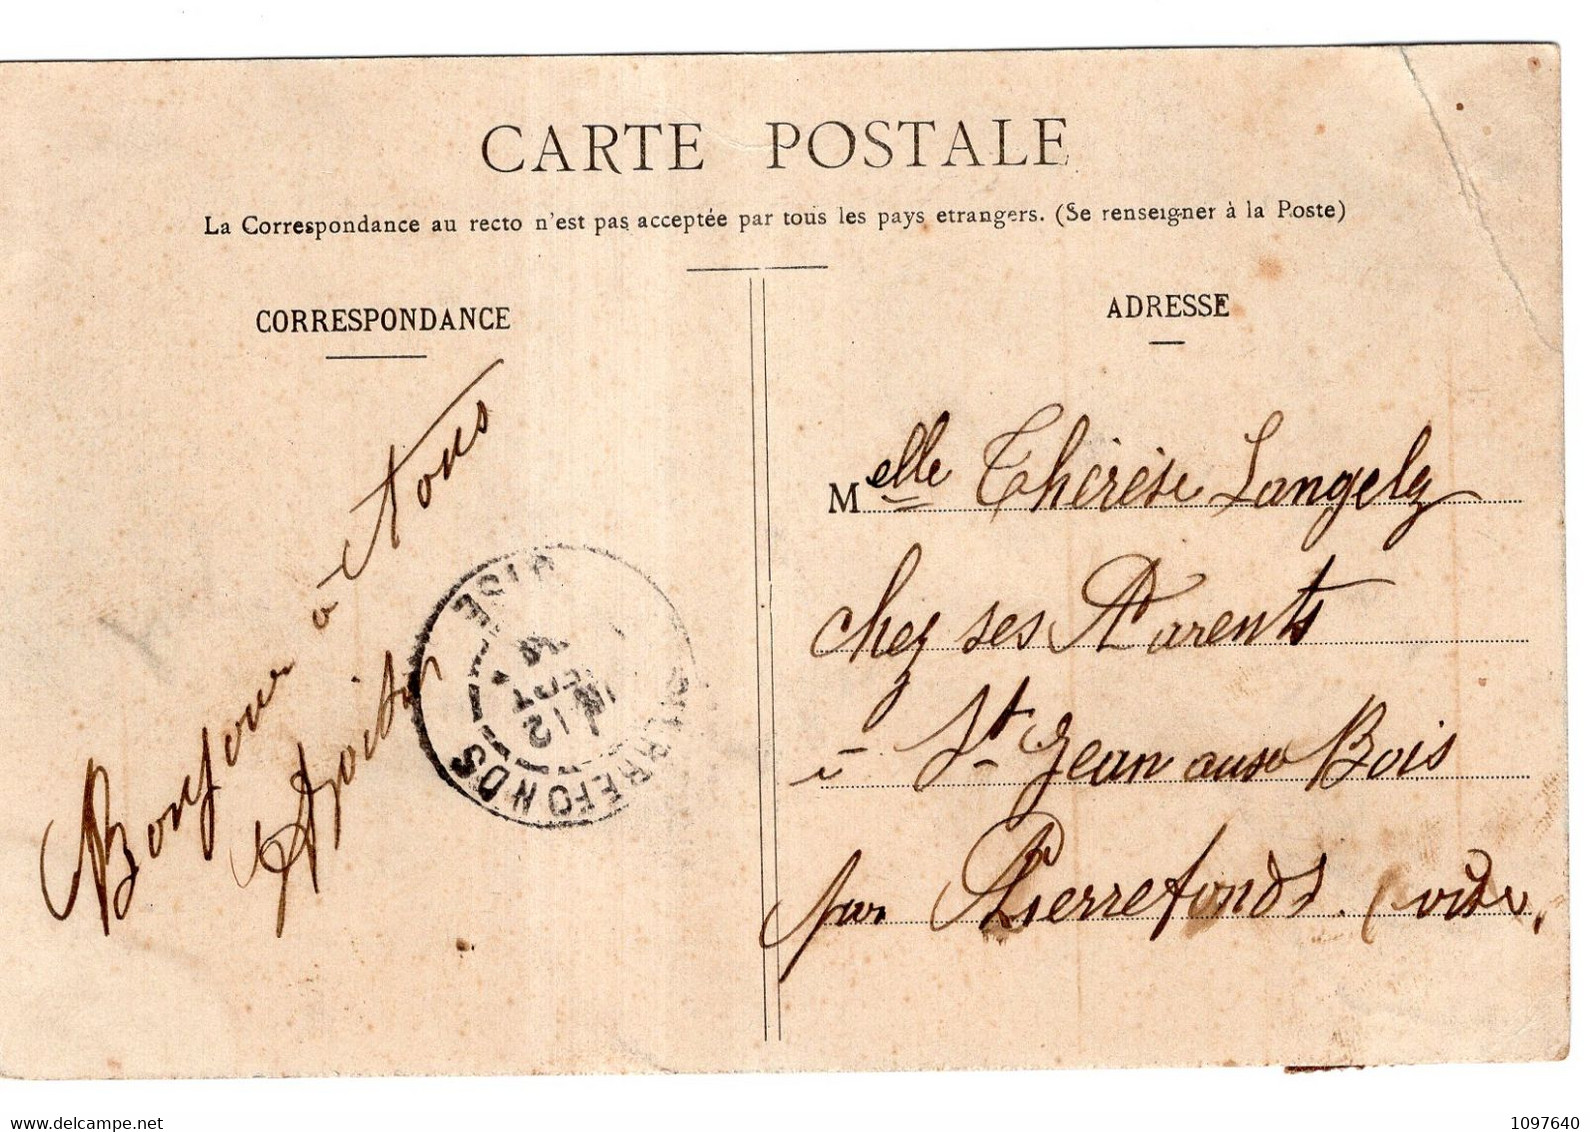 CARTE POSTALE
La Correspondance au recto n'est pas acceptée par tous les pays etrangers. (Se renseigner à la Poste)
CORRESPONDANCE
Bonjour à tous
PIERREFONDS
OISE
ADRESSE
Melle Thérèse Langely
chez ses Parents
à St Jean aux Bois
par Pierrefonds. (oise,
1097640